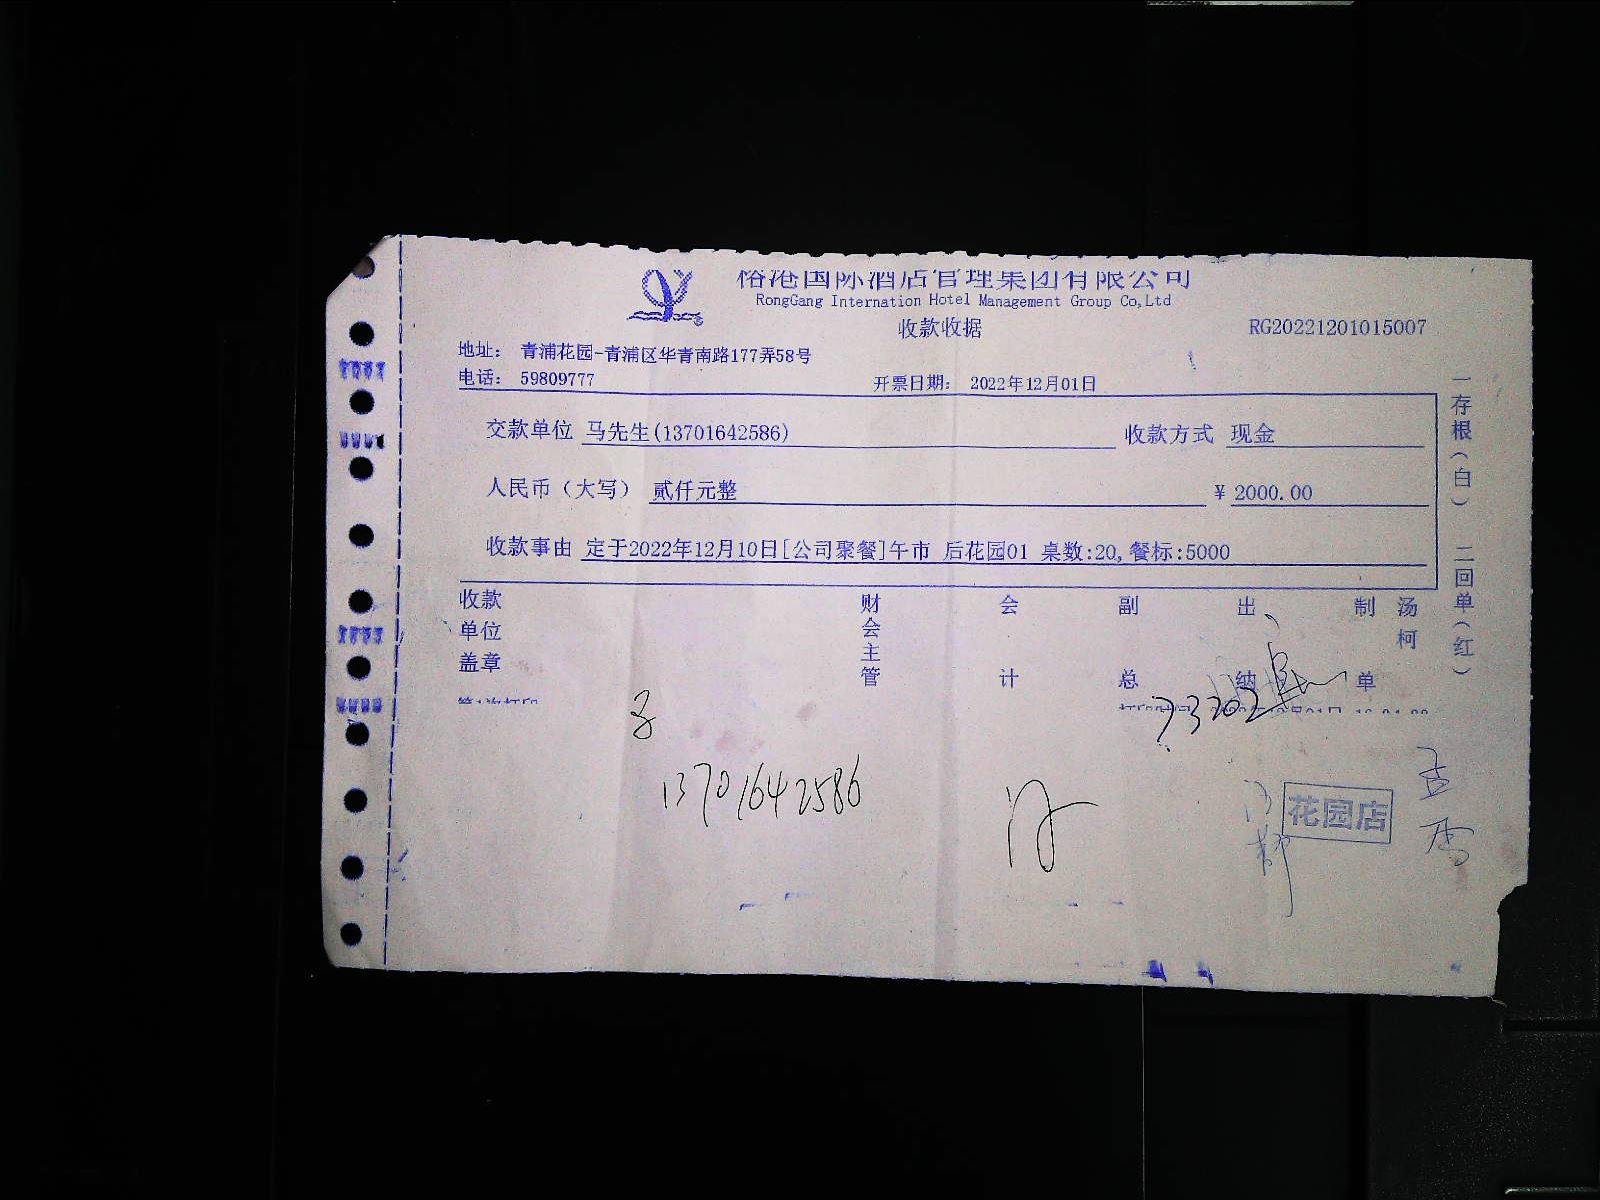 国际酒店管理集团有限公司
RongGang Internation Hotel Management Group Co,Ltd
收款收据
RG20221201015007
地址: 青浦花园-青浦区华青南路177弄58号
电话: 59809777 开票日期: 2022年12月01日
交款单位 马先生(13701642586) 收款方式 现金
人民币(大写) 贰仟元整 ¥ 2000.00
收款事由 定于2022年12月10日[公司聚餐]午市 后花园01 桌数:20,餐标:5000
一存根(白) 二回单(红)
收款单位盖章 财会主管 会计 副总 出纳 制单 汤柯
13701642586
花园店